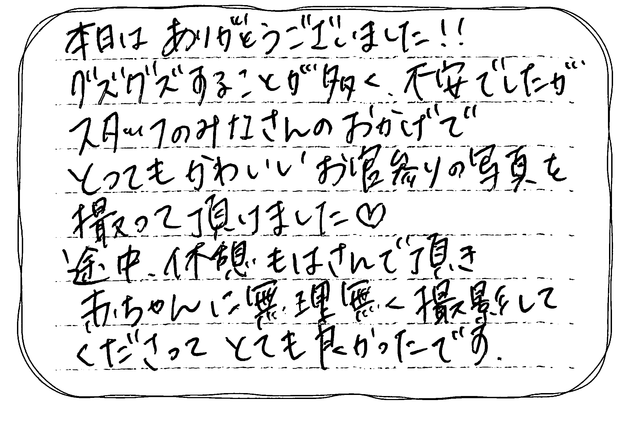 本日は ありがとうございました!!
グズグズすることが多く、不安でしたが
スタッフのみなさんのおかげで
とってもかわいいお宮参りの写真を
撮って頂けました♡
途中、休憩もはさんで頂き
赤ちゃんに無理無く撮影して
くださって とても良かったです。